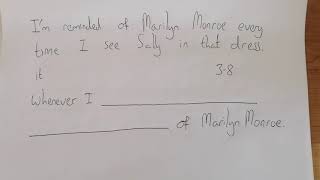 I'm reminded of Marilyn Monroe every
time I see Sally in that dress.
it 3-8
Whenever I ____________________
____________________ of Marilyn Monroe.